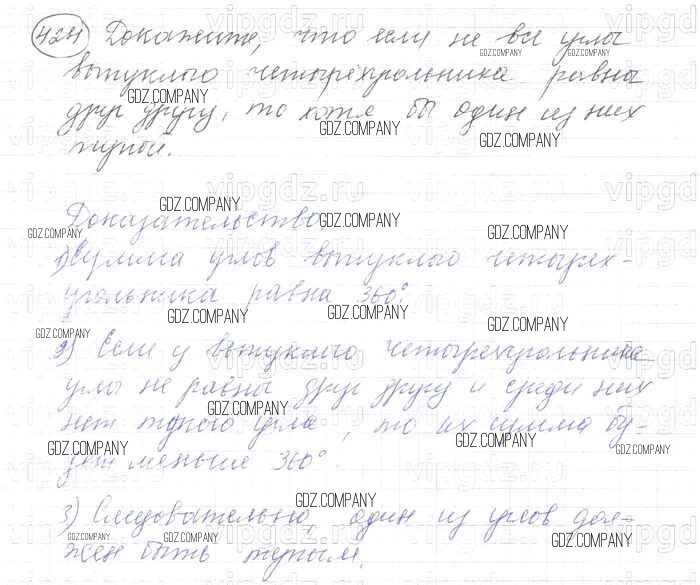 424 Докажите, что если не все углы
выпуклого четырехугольника равны
друг другу, то хотя бы один из них
тупой.
Доказательство
1) Сумма углов выпуклого четырех-
угольника равна 360°.
2) Если у выпуклого четырехугольника
углы не равны друг другу и среди них
нет тупого угла, то их сумма бу-
дет меньше 360°.
3) Следовательно, один из углов дол-
жен быть тупым.
GDZ.COMPANY
vipgdz.ru